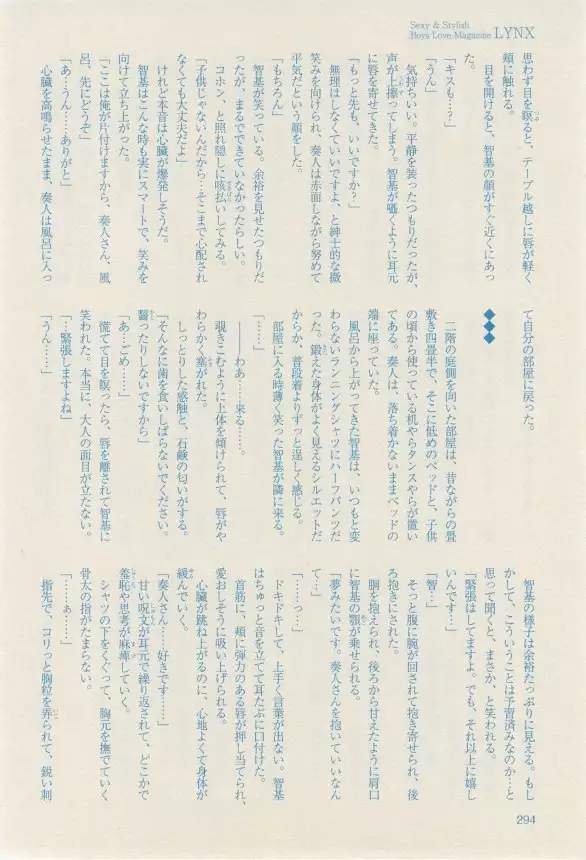 Sexy & Stylish
Boys Love Magazine LYNX
思わず目を瞑ると、テーブル越しに唇が軽く
頬に触れる。
目を開けると、智基の顔がすぐ近くにあっ
た。
「キスも…?」
「うん」
気持ちいい。平静を装ったつもりだったが、
声が上擦ってしまう。智基が囁くように耳元
に唇を寄せてきた。
「もっと先も、いいですか?」
無理はしなくていいですよ、と紳士的な微
笑みを向けられ、奏人は赤面しながら努めて
平気だという顔をした。
「もちろん」
智基が笑っている。余裕を見せたつもりだ
ったが、まるでできていなかったらしい。
コホン、と照れ隠しに咳払いしてみる。
「子供じゃないんだから…そこまで心配され
なくても大丈夫だよ」
けれど本音は心臓が爆発しそうだ。
智基はこんな時も実にスマートで、笑みを
向けて立ち上がった。
「ここは俺が片付けますから、奏人さん、風
呂、先にどうぞ」
「あ…うん……ありがと」
心臓を高鳴らせたまま、奏人は風呂に入っ
て自分の部屋に戻った。
◆◆◆
二階の庭側を向いた部屋は、昔ながらの畳
敷き四畳半で、そこに低めのベッドと、子供
の頃から使っている机やらタンスやらが置い
てある。奏人は、落ち着かないままベッドの
端に座っていた。
風呂から上がってきた智基は、いつもと変
わらないランニングシャツにハーフパンツだ
った。鍛えた身体がよく見えるシルエットだ
からか、普段着よりずっと逞しく感じる。
部屋に入る時薄く笑った智基が隣に来る。
「……」
――わあ……来る……。
覗きこむように上体を傾けられて、唇がや
わらかく塞がれた。
しっとりした感触と、石鹸の匂いがする。
「そんなに歯を食いしばらないでください。
齧ったりしないですから」
「あ…ごめ……」
慌てて目を瞑ったら、唇を離されて智基に
笑われた。本当に、大人の面目が立たない。
「…緊張しますよね」
「うん……」
智基の様子は余裕たっぷりに見える。もし
かして、こういうことは予習済みなのか…と
思って聞くと、まさか、と笑われる。
「緊張はしてますよ。でも、それ以上に嬉し
いんです」
「智…」
そっと腹に腕が回されて抱き寄せられ、後
ろ抱きにされた。
胴を抱えられ、後ろから甘えたように肩口
に智基の顎が乗せられる。
「夢みたいです。奏人さんを抱いていいなん
て…」
「……っ…」
ドキドキして、上手く言葉が出ない。智基
はちゅっと音を立てて耳たぶに口付けた。
首筋に、頬に弾力のある唇が押し当てられ、
愛おしそうに吸い上げられる。
心臓が跳ね上がるのに、心地よくて身体が
緩んでいく。
「奏人さん……好きです……」
甘い呪文が耳元で繰り返されて、どこかで
羞恥や思考が麻痺していく。
シャツの下をくぐって、胸元を撫でていく
骨太の指がたまらない。
「……ぁ……」
指先で、コリっと胸粒を弄られて、鋭い刺
294